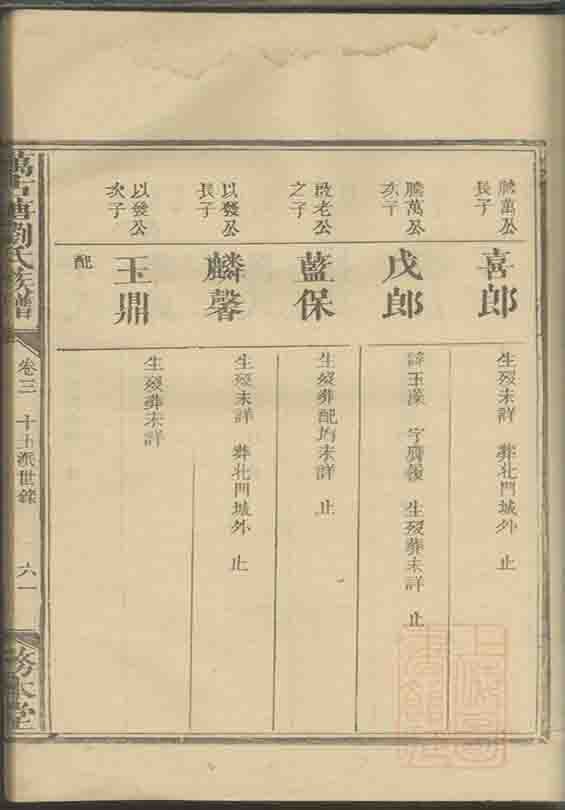 騰萬公
長子
喜郎
生歿未詳 葬北門城外 止
騰萬公
次子
戊郎
諱玉 字 生歿葬未詳 止
老公
之子
藍保
生歿葬配均未詳 止
以發公
長子
麟馨
生歿未詳 葬北門城外 止
以發公
次子
玉鼎
生歿葬未詳
配
萬石塘劉氏族譜
卷三 十五派世錄
六一
務本堂